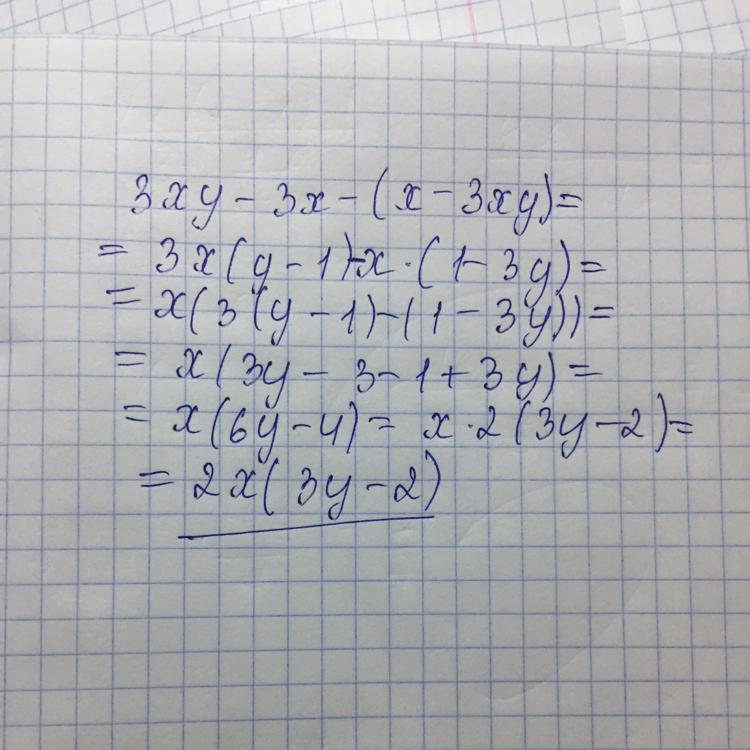 3xy - 3x - (x - 3xy) =
= 3x(y - 1) - x · (1 - 3y) =
= x(3(y - 1) - (1 - 3y)) =
= x(3y - 3 - 1 + 3y) =
= x(6y - 4) = x · 2(3y - 2) =
= 2x(3y - 2)